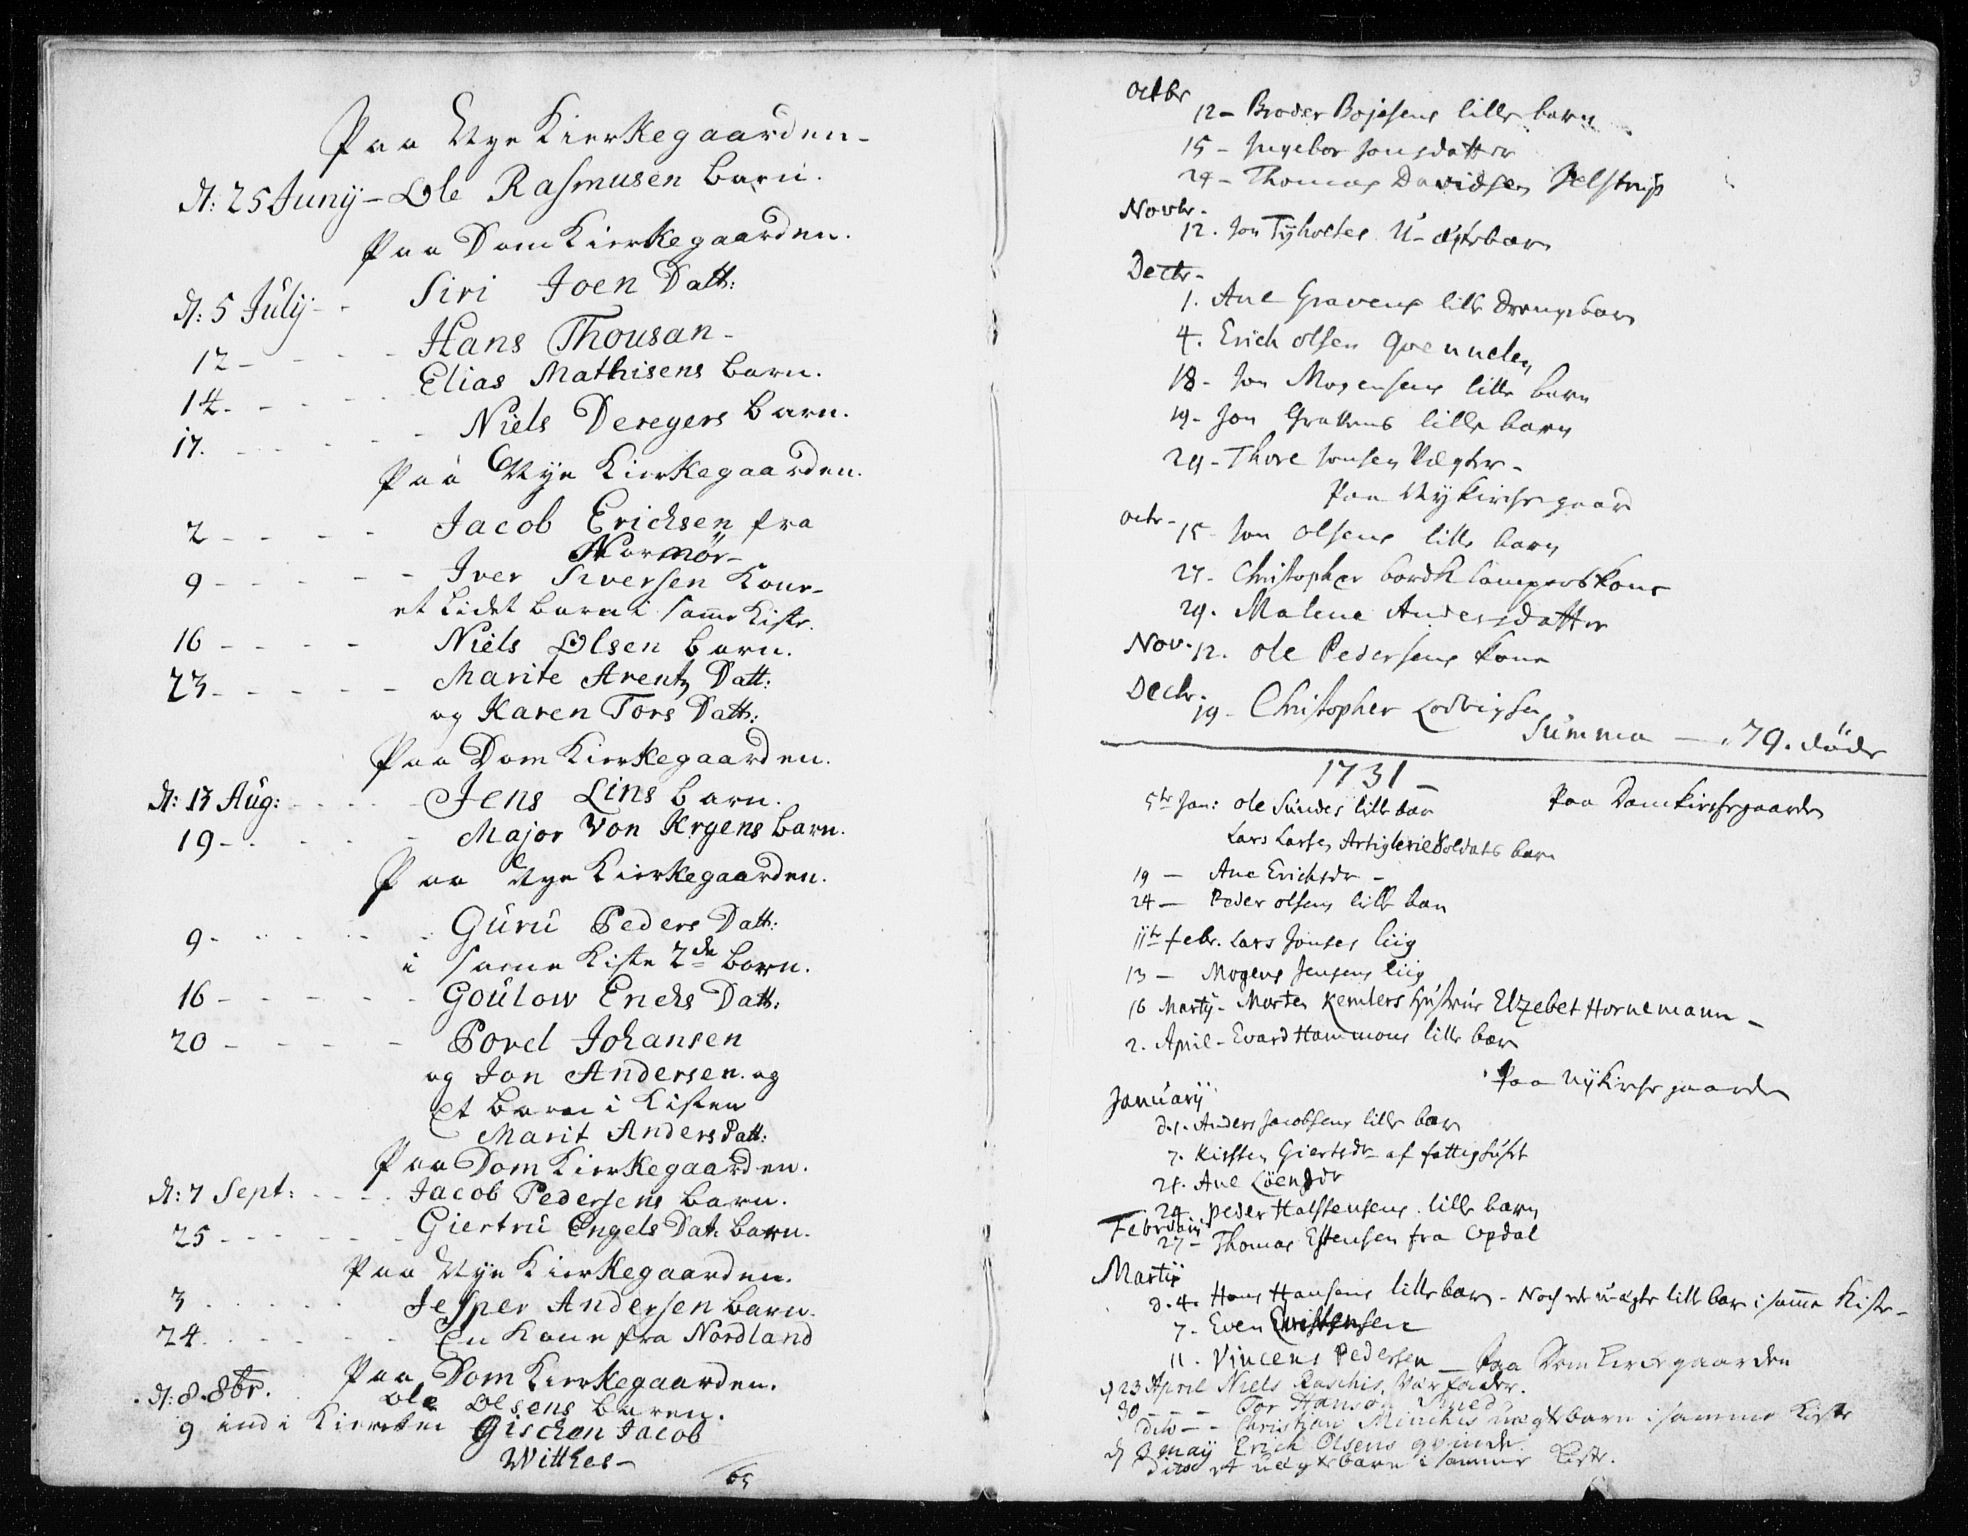 Paa Nye Kierkegaarden -
d: 25 Junÿ - Ole Rasmusen barn.
Paa Dom Kierkegaarden.
d: 5 Julÿ - - Siri Joen Datt:
12 - - - - Hans Thousan -
14. - - - - Elias Mathisens barn.
17. - - - - Niels Deregers barn.
Paa Nye Kierkegaarden.
2 - - - - Jacob Ericksen fra
Normör -
9 - - - - - Iver Siversen Kone -
et Lidet barn i samme Kiste.
16 - - - - Niels Olsen barn.
23 - - - - - Marite Arentz Datt:
og Karen Tors Datt:
Paa Dom Kierkegaarden.
d: 13 Aug: - - - - Jens Lins barn.
19 - - - - Major Von Krgens barn.
Paa Nye Kierkegaarden.
9 - - - - - Guru Peders Datt:
i samme Kiste 2de barn.
16 - - - - - Goulow Ericks Datt:
20 - - - - - Povel Johansen
og Jon Andersen og
Et barn i Kisten
Marit Anders Datt:
Paa Dom Kierkegaarden.
d: 7 Sept: - - - Jacob Pedersens barn.
25 - - - - - Giertru Engels Dat: barn.
Paa Nye Kierkegaarden.
3 . . . . . Jesper Andersen barn.
24. . . . . . En Kone fra Nordland
Paa Dom Kierkegaarden.
d: 8. 8br. Ole Olsens barn.
9 ind i Kiercken Gischen Jacob
Witthes -
3
octbr
12 - Broder Bojesens lille barn
15 - Ingebor Jonsdatter
24 - Thomas Davidsen Jelstrup
Novbr -
12. Jon Tÿholtes U-ægte barn
Decbr -
1. Ane Gravens lille drenge barn
4. Erich olsen
18 - Jon Mogensens lille barn
19 - Jon Grattens lille barn
29 - Thore Jonsen Vægter -
Paa Nÿ Kirchegaard
octr - 15 - Jon olsens lille barn
27 - Christopher kone
29. Malene Andersdatter
Nov. 12. ole Pedersens kone
Decbr. 19 - Christopher Lodvigsen
Summa - 79. døde
1731 -
5te Jan: ole Sundes lille barn Paa Domkirchegaarden
Lars Larsen Artiglerie Soldats barn
19 - Ane Erichsdr -
24 - Peder olsens lille barn
11te febr. Lars Jonsens liig
13 - Mogens Jensens liig
16 Martÿ - Morten Kemlers hustrue Elzebet Hornemann -
2. April - Evard Hammons lille barn
Paa Nÿkirchegaarden
Januarÿ
d. 1. Anders Jacobsens lille barn
7. Kirsten Giertsdr - af fattighuset
21. Ane Löensdr
24. peder Halstensens lille barn
Februarÿ
27 - Thomas Estensen fra Opdal
Martÿ
d. 4. Hans Hansens lille barn - Noch et u-ægte lille barn i samme Kiste -
7. Even
11. Vincens Pedersen - Paa Dom Kirchegaarden
d 23 April Niels Raschis.
30 - - - Tor Hanson Smed
dito - - Christian Minchis uægte barn i samme Kiste
d maÿ Erich Olsens qvinde.
dito et uægte barn i samme Kiste.